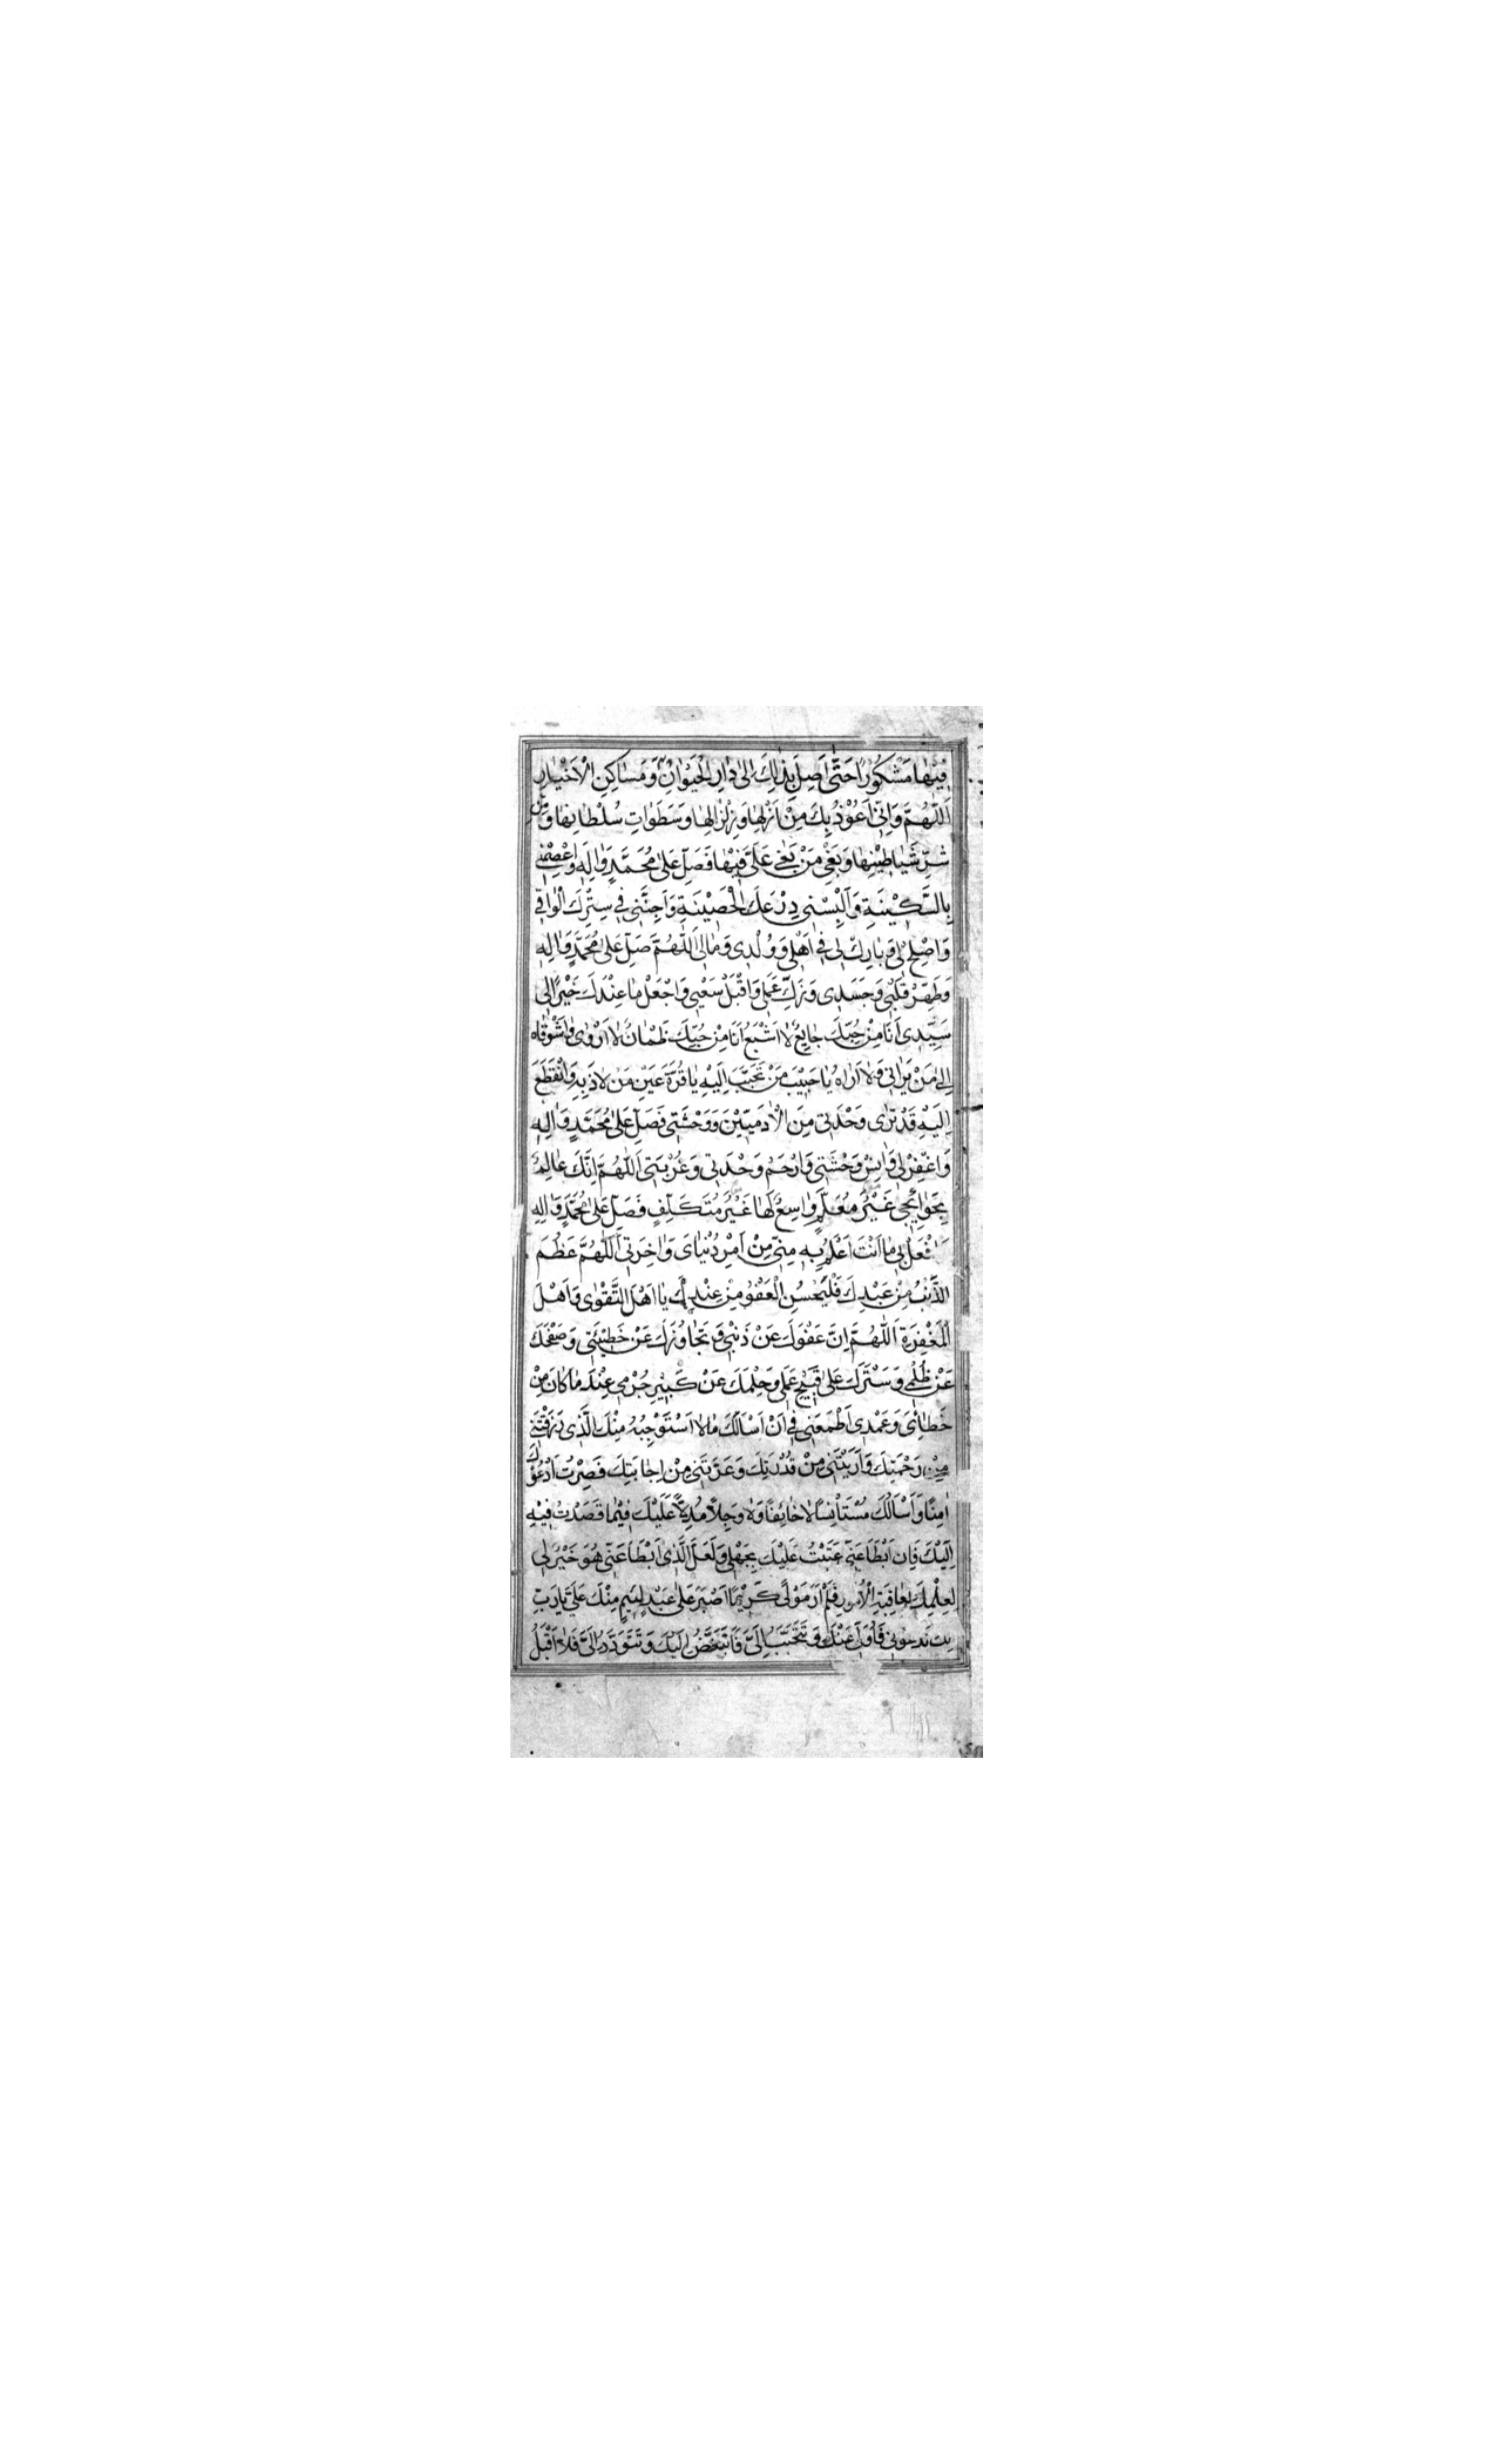 فِيْهٰا مَشْكُوْرًا حَتّٰى اَصِلَ بِذٰلِكَ اِلىٰ دٰارِ الْحَيَوٰانِ وَ مَسٰاكِنِ الْاَخْيٰارِ
اَللّٰهُمَّ وَ اِنّيٓ اَعُوْذُ بِكَ مِنْ اَزْلِهٰا وَ زِلْزٰالِهٰا وَ سَطَوٰاتِ سُلْطٰانِهٰا وَ مِنْ
شَرِّ شَيٰاطِيْنِهٰا وَ بَغْيِ مَنْ بَغٰى عَلَىَّ فِيْهٰا فَصَلِّ عَلىٰ مُحَمَّدٍ وَ اٰلِهِ وَ اعْصِمْنِي
بِالسَّكِيْنَةِ وَ اَلْبِسْنِي دِرْعَكَ الْحَصِيْنَةِ وَ اَجِنَّنِي فِي سِتْرِكَ الْوٰاقِي
وَ اَصْلِحْ لِي وَ بٰارِكْ لِي فِي اَهْلِي وَ وُلْدِي وَ مٰالِي اَللّٰهُمَّ صَلِّ عَلىٰ مُحَمَّدٍ وَ اٰلِهِ
وَ طَهِّرْ قَلْبِي وَ جَسَدِى وَ زَكِّ عَمَلِي وَ اقْبَلْ سَعْيِي وَ اجْعَلْ مٰا عِنْدَكَ خَيْرًا لِي
سَيِّدِى اَنَا مِنْ حُبِّكَ جٰايِعٌ لٰا اَشْبَعُ اَنَا مِنْ حُبِّكَ ظَمْاٰنُ لٰا اَرْوىٰ وٰا شَوْقٰاه
اِلىٰ مَنْ يَرٰانِي وَ لٰا اَرٰاهُ يٰا حَبِيْبَ مَنْ تَحَبَّبَ اِلَيْهِ يٰا قُرَّةَ عَيْنِ مَنْ لٰاذَ بِهِ وَ انْقَطَعَ
اِلَيْهِ قَدْ تَرٰى وَحْدَتِي مِنَ الْاٰدَمِيّيْنَ وَ وَحْشَتِي فَصَلِّ عَلىٰ مُحَمَّدٍ وَ اٰلِهِ
وَ اغْفِرْ لِي وَ اٰنِسْ وَحْشَتِي وَ ارْحَمْ وَحْدَتِي وَ غُرْبَتِي اَللّٰهُمَّ اِنَّكَ عٰالِمٌ
بِحَوٰائِجِي غَيْرُ مُعَلَّمٍ وٰاسِعٌ لَهٰا غَيْرُ مُتَكَلِّفٍ فَصَلِّ عَلىٰ مُحَمَّدٍ وَ اٰلِهِ
وَ افْعَلْ بِي مٰا اَنْتَ اَعْلَمُ بِهِ مِنّي مِنْ اَمْرِ دُنْيٰاىَ وَ اٰخِرَتِي اَللّٰهُمَّ عَظُمَ
الذَّنْبُ مِنْ عَبْدِكَ فَلْيَحْسُنِ الْعَفْوُ مِنْ عِنْدِكَ يٰا اَهْلَ التَّقْوٰى وَ اَهْلَ
الْمَغْفِرَةِ اَللّٰهُمَّ اِنَّ عَفْوَكَ عَنْ ذَنْبِي وَ تَجٰاوُزَكَ عَنْ خَطِيْئَتِي وَ صَفْحَكَ
عَنْ ظُلْمِي وَ سَتْرَكَ عَلىٰ قَبِيْحِ عَمَلِي وَ حِلْمَكَ عَنْ كَبِيْرِ جُرْمِي عِنْدَ مٰا كٰانَ مِنْ
خَطٰائِىَ وَ عَمْدِى اَطْمَعَنِي فِي اَنْ اَسْاَلَكَ مٰا لٰا اَسْتَوْجِبُهُ مِنْكَ الَّذِى رَزَقْتَنِي
مِنْ رَحْمَتِكَ وَ اَرَيْتَنِي مِنْ قُدْرَتِكَ وَ عَرَّفْتَنِي مِنْ اِجٰابَتِكَ فَصِرْتُ اَدْعُوْكَ
اٰمِنًا وَ اَسْاَلُكَ مُسْتَاْنِسًا لٰا خٰائِفًا وَ لٰا وَجِلًا مُدِلًّا عَلَيْكَ فِيْمٰا قَصَدْتُ فِيْهِ
اِلَيْكَ فَاِنْ اَبْطَاَ عَنّي عَتَبْتُ عَلَيْكَ بِجَهْلِي وَ لَعَلَّ الَّذِى اَبْطَاَ عَنّي هُوَ خَيْرٌ لِي
لِعِلْمِكَ بِعٰاقِبَةِ الْاُمُورِ فَلَمْ اَرَ مَوْلًى كَرِيْمًا اَصْبَرَ عَلىٰ عَبْدٍ لَئِيمٍ مِنْكَ عَلَىَّ يٰا رَبِّ
تَدْعُونِي فَاُوَلّي عَنْكَ وَ تَتَحَبَّبُ اِلَىَّ فَاَتَبَغَّضُ اِلَيْكَ وَ تَتَوَدَّدُ اِلَىَّ فَلٰا اَقْبَلُ